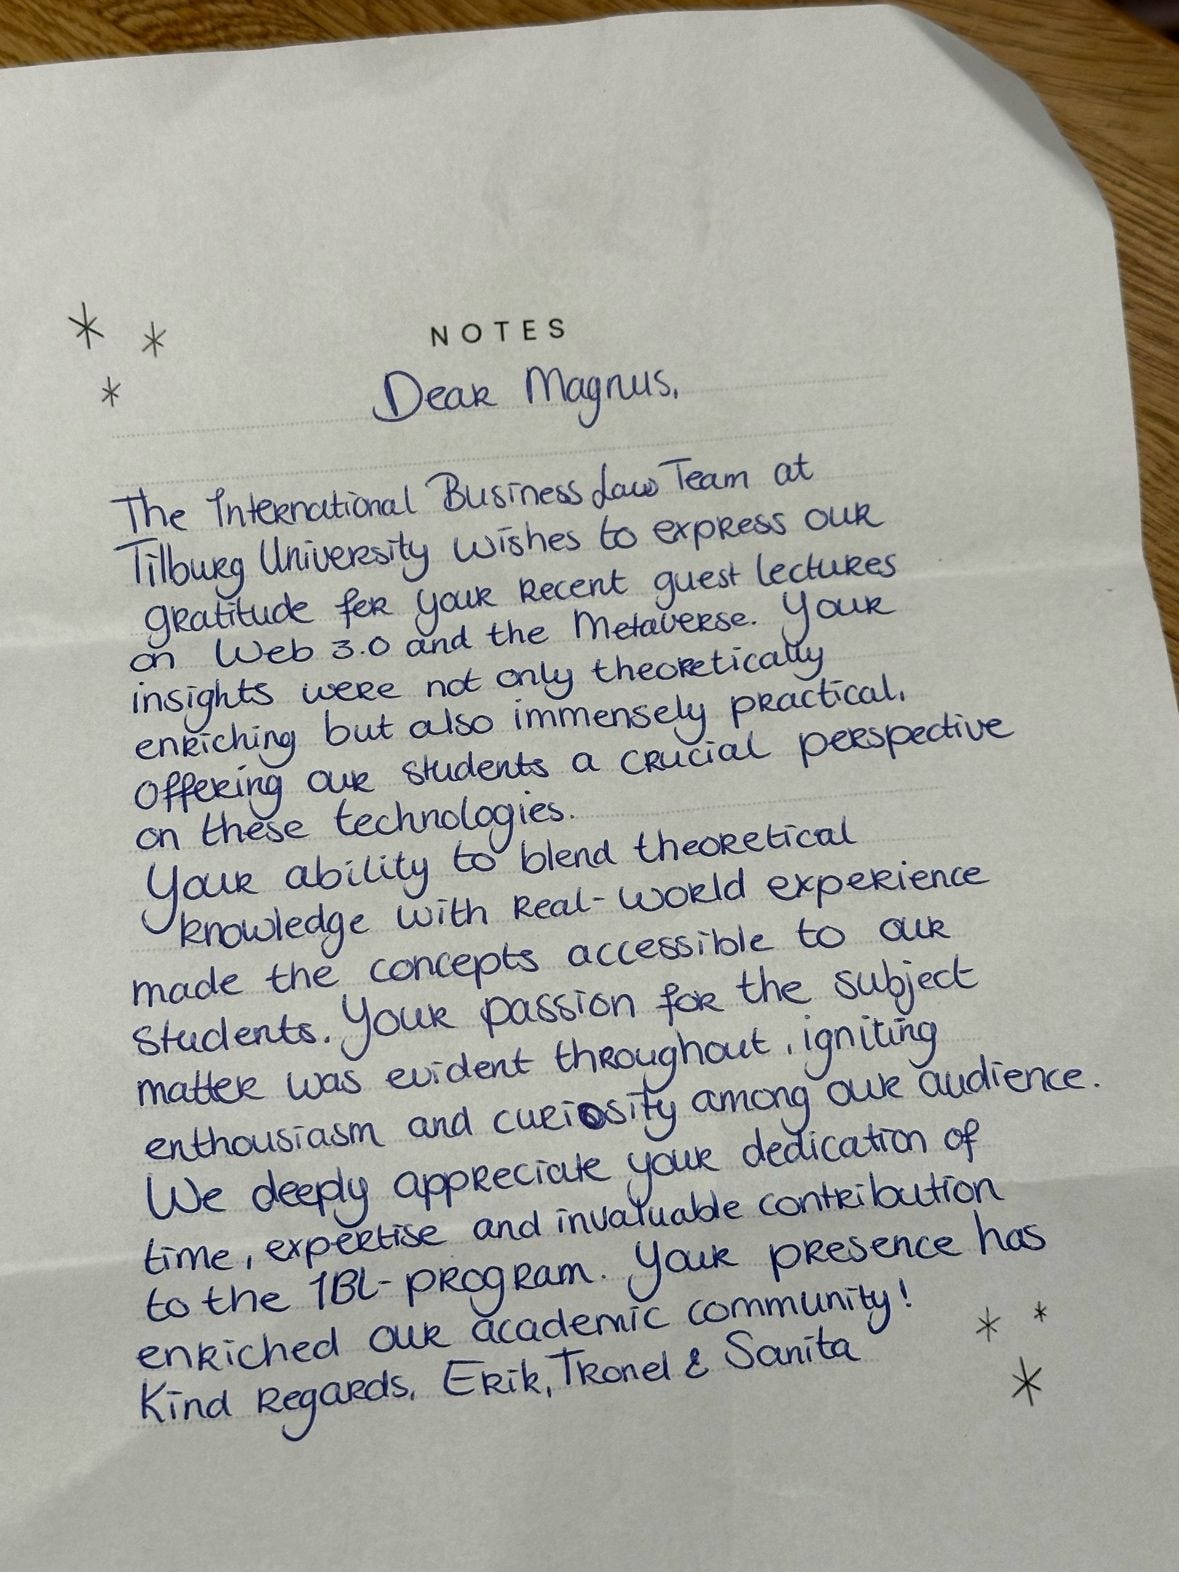 NOTES
Dear Magnus,
The International Business Law Team at
Tilburg University wishes to express our
gratitude for your recent guest lectures
on Web 3.0 and the Metaverse. Your
insights were not only theoretically
enriching but also immensely practical,
offering our students a crucial perspective
on these technologies.
Your ability to blend theoretical
knowledge with real-world experience
made the concepts accessible to our
students. Your passion for the subject
matter was evident throughout, igniting
enthusiasm and curiosity among our audience.
We deeply appreciate your dedication of
time, expertise and invaluable contribution
to the IBL-program. Your presence has
enriched our academic community!
Kind regards, Erik, Tronel & Sanita